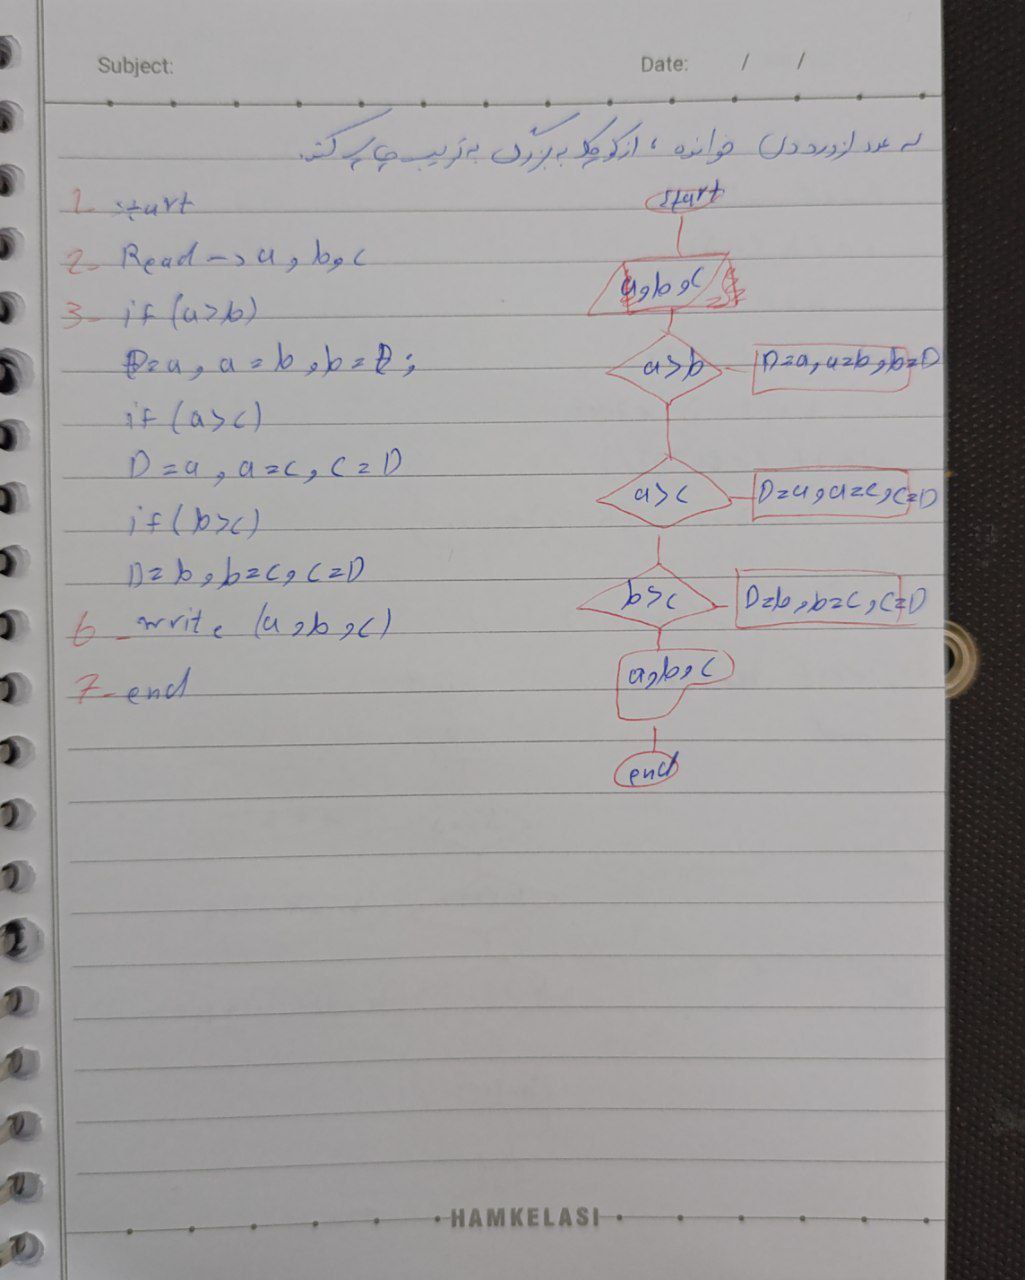 Subject:
Date: / /
سه عدد از ورودی خوانده ، از کوچک به بزرگ به ترتیب چاپ کند.
1- start
2- Read → a, b, c
3- if (a>b)
D=a, a=b, b=D;
if (a>c)
D=a, a=c, c=D
if (b>c)
D=b, b=c, c=D
6- write (a, b, c)
7- end
start
a, b, c
a>b
D=a, a=b, b=D
a>c
D=a, a=c, c=D
b>c
D=b, b=c, c=D
a, b, c
end
HAMKELASI